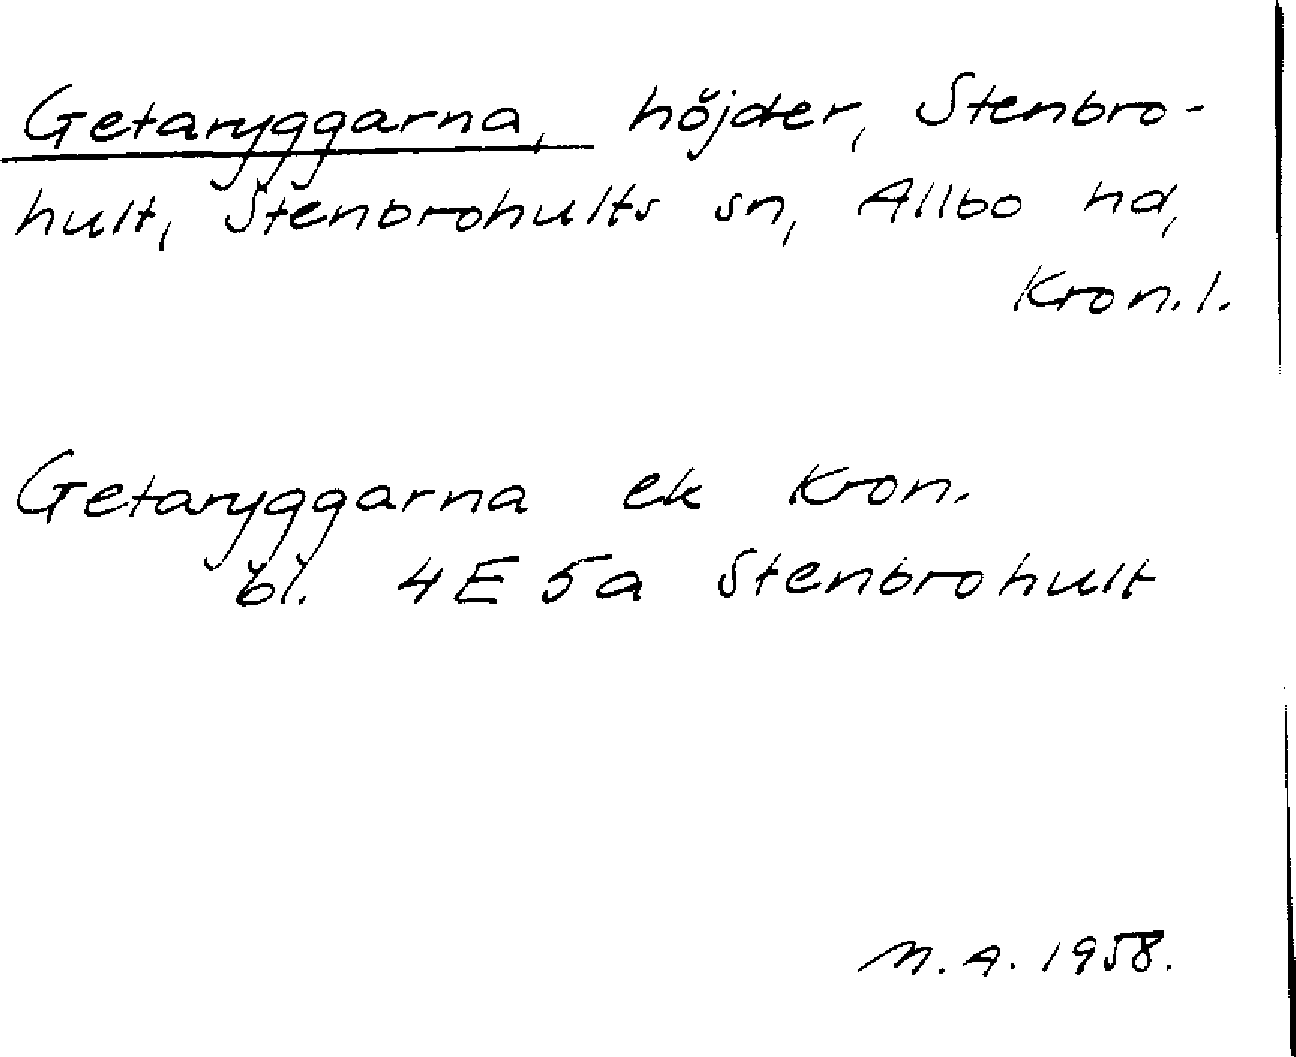 Getaryggarna, höjder, Stenbro-
hult, Stenbrohults sn, Allbo hd,
Kron. l.
Getaryggarna ek Kron.
bl. 4E 5a Stenbrohult
M. A. 1958.